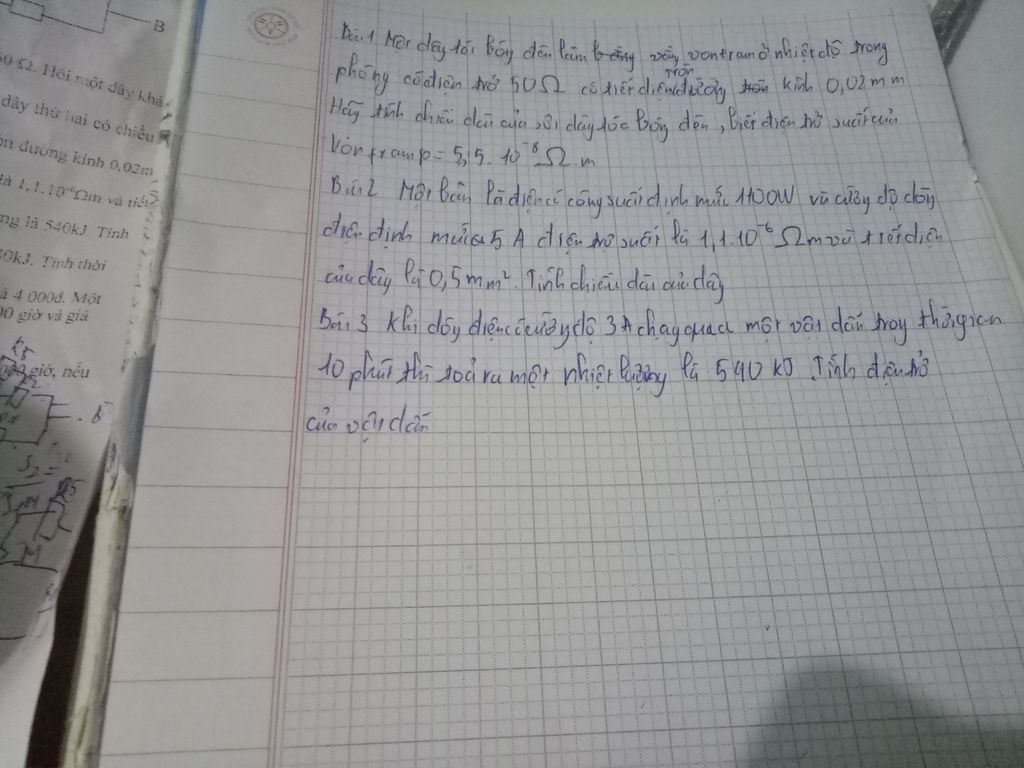 B
0 Ω. Hỏi một dây khá
dây thứ hai có chiều
ờn đường kính 0,02m
là 1,1.10⁻⁶Ωm và tiết
ng là 540kJ. Tính
0kJ. Tính thời
à 4 000đ. Một
00 giờ và giá
giờ, nếu
Bài 1 Một dây tóc bóng đèn làm bằng vonfram ở nhiệt độ trong
phòng có điện trở 50Ω có tiết diện tròn đường kính 0,02mm
Hãy tính chiều dài của sợi dây tóc bóng đèn, biết điện trở suất của
Vonfram p = 5,5.10⁻⁸Ω.m
Bài 2 Một bàn là điện có công suất định mức 1100W và cường độ dòng
điện định mức 5A điện trở suất là 1,1.10⁻⁶Ωm và tiết diện
của dây là 0,5mm². Tính chiều dài của dây
Bài 3 Khi dòng điện có cường độ 3A chạy qua một vật dẫn trong thời gian
10 phút thì toả ra một nhiệt lượng là 540 KJ. Tính điện trở
của vật dẫn